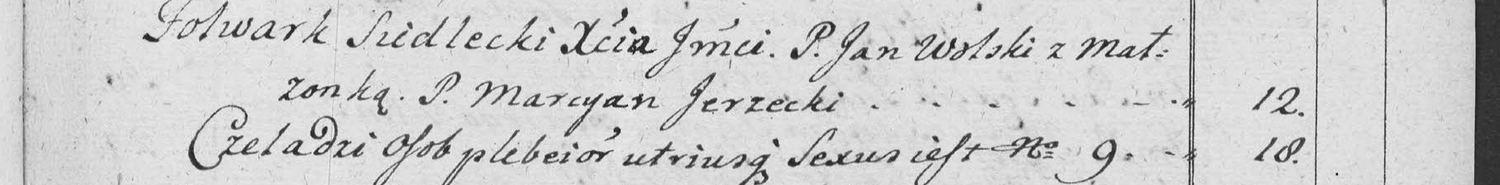 Folwark Siedlecki Xcia Jmci. P. Jan Wolski z Mał=
żonką. P. Marcyan Jerzecki . . . . . . . 12.
Czeladzi osob plebeior utriusq sexus iest No 9. - 18.